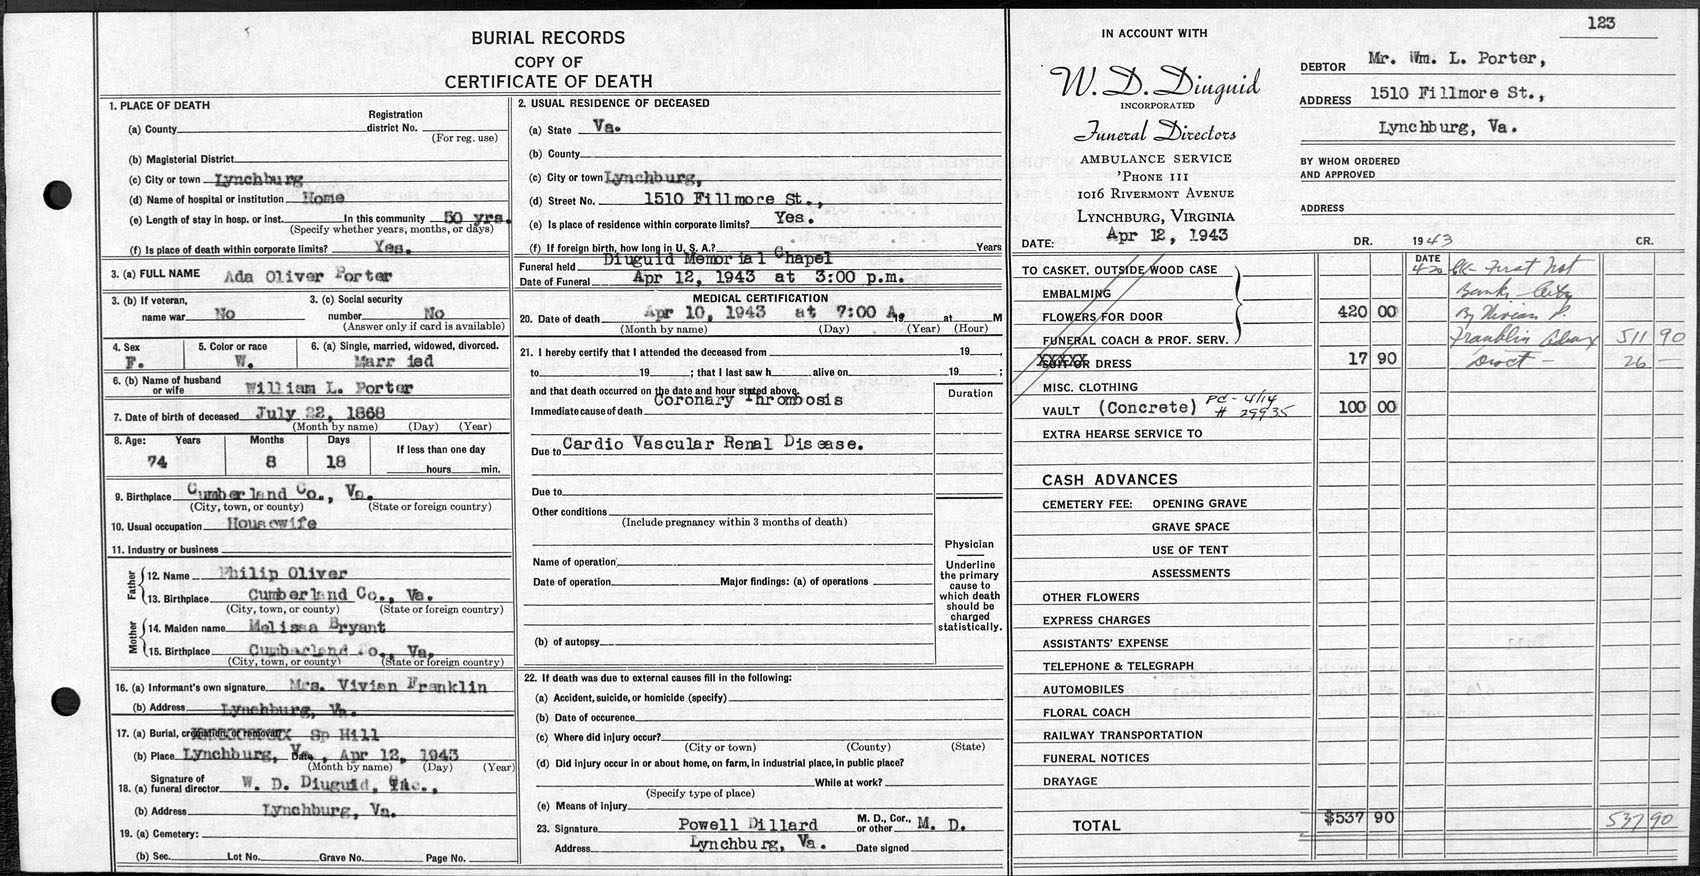 123
BURIAL RECORDS
COPY OF
CERTIFICATE OF DEATH
1. PLACE OF DEATH
Registration
(a) County district No.
(For reg. use)
(b) Magisterial District
(c) City or town Lynchburg
(d) Name of hospital or institution Home
(e) Length of stay in hosp. or inst. In this community 50 yrs.
(Specify whether years, months, or days)
(f) Is place of death within corporate limits? Yes.
3. (a) FULL NAME Ada Oliver Porter
3. (b) If veteran, 3. (c) Social security
name war No number No
(Answer only if card is available)
4. Sex 5. Color or race 6. (a) Single, married, widowed, divorced.
F. W. Married
6. (b) Name of husband
or wife William L. Porter
7. Date of birth of deceased July 22, 1868
(Month by name) (Day) (Year)
8. Age: Years Months Days If less than one day
74 8 18 hours min.
9. Birthplace Cumberland Co., Va.
(City, town, or county) (State or foreign country)
10. Usual occupation Housewife
11. Industry or business
Father
12. Name Philip Oliver
13. Birthplace Cumberland Co., Va.
(City, town, or county) (State or foreign country)
Mother
14. Maiden name Melissa Bryant
15. Birthplace Cumberland Co., Va.
(City, town, or county) (State or foreign country)
16. (a) Informant's own signature Mrs. Vivian Franklin
(b) Address Lynchburg, Va.
17. (a) Burial, cremation, or removal? Sp Hill
(b) Place Lynchburg, Va. Date, Apr 12, 1943
(Month by name) (Day) (Year)
18. (a) Signature of funeral director W. D. Diuguid, Inc.,
(b) Address Lynchburg, Va.
19. (a) Cemetery:
(b) Sec. Lot No. Grave No. Page No.
2. USUAL RESIDENCE OF DECEASED
(a) State Va.
(b) County
(c) City or town Lynchburg,
(d) Street No. 1510 Fillmore St.,
(e) Is place of residence within corporate limits? Yes.
(f) If foreign birth, how long in U. S. A.? Years
Funeral held Diuguid Memorial Chapel
Date of Funeral Apr 12, 1943 at 3:00 p.m.
MEDICAL CERTIFICATION
20. Date of death Apr 10, 1943 at 7:00 A. 19 at M
(Month by name) (Day) (Year) (Hour)
21. I hereby certify that I attended the deceased from 19 ,
to 19 ; that I last saw h alive on 19 ;
and that death occurred on the date and hour stated above.
Duration
Immediate cause of death Coronary Thrombosis
Due to Cardio Vascular Renal Disease.
Due to
Other conditions
(Include pregnancy within 3 months of death)
Name of operation
Date of operation Major findings: (a) of operations
(b) of autopsy
Physician
Underline
the primary
cause to
which death
should be
charged
statistically.
22. If death was due to external causes fill in the following:
(a) Accident, suicide, or homicide (specify)
(b) Date of occurence
(c) Where did injury occur?
(City or town) (County) (State)
(d) Did injury occur in or about home, on farm, in industrial place, in public place?
While at work?
(Specify type of place)
(e) Means of injury
23. Signature Powell Dillard M. D., Cor., or other M. D.
Address Lynchburg, Va. Date signed
IN ACCOUNT WITH
W. D. Diuguid
INCORPORATED
Funeral Directors
AMBULANCE SERVICE
'PHONE 111
1016 RIVERMONT AVENUE
LYNCHBURG, VIRGINIA
DATE: Apr 12, 1943
DEBTOR Mr. Wm. L. Porter,
ADDRESS 1510 Fillmore St.,
Lynchburg, Va.
BY WHOM ORDERED
AND APPROVED
ADDRESS
DR. 1943 CR.
DATE
TO CASKET, OUTSIDE WOOD CASE 4-20 Ck- First Nat
EMBALMING Bank - City
FLOWERS FOR DOOR 420 00 By Vivian P
FUNERAL COACH & PROF. SERV. Franklin 511 90
SUIT OR DRESS 17 90 Disct - 26 —
MISC. CLOTHING
VAULT (Concrete) Pd - 4/14 # 29935 100 00
EXTRA HEARSE SERVICE TO
CASH ADVANCES
CEMETERY FEE: OPENING GRAVE
GRAVE SPACE
USE OF TENT
ASSESSMENTS
OTHER FLOWERS
EXPRESS CHARGES
ASSISTANTS' EXPENSE
TELEPHONE & TELEGRAPH
AUTOMOBILES
FLORAL COACH
RAILWAY TRANSPORTATION
FUNERAL NOTICES
DRAYAGE
TOTAL $537 90 537 90